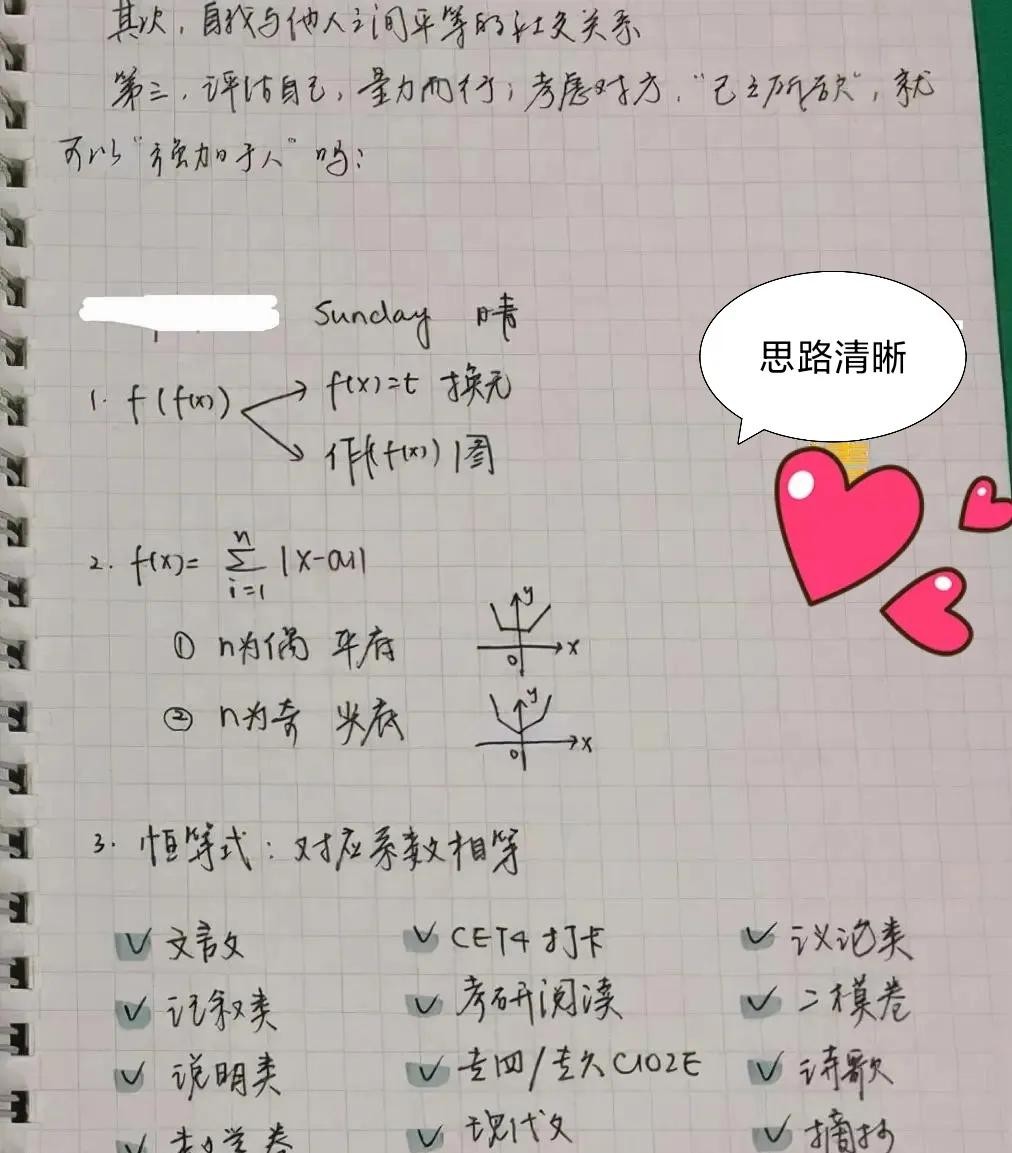 其次，自我与他人之间平等的社交关系
第三，评估自己，量力而行；考虑对方，"己之所欲"，就
可以"强加于人"吗？
Sunday 晴
思路清晰
1. f(f(x))
f(x)=t 换元
作f(f(x))图
2. f(x)= n ∑ i=1 |x-ai|
① n为偶 平底
y
x
0
② n为奇 尖底
y
x
0
3. 恒等式：对应系数相等
文言文 CET4打卡 议论类
记叙类 考研阅读 二模卷
说明类 专四/专八CLOZE 诗歌
数学卷 现代文 摘抄